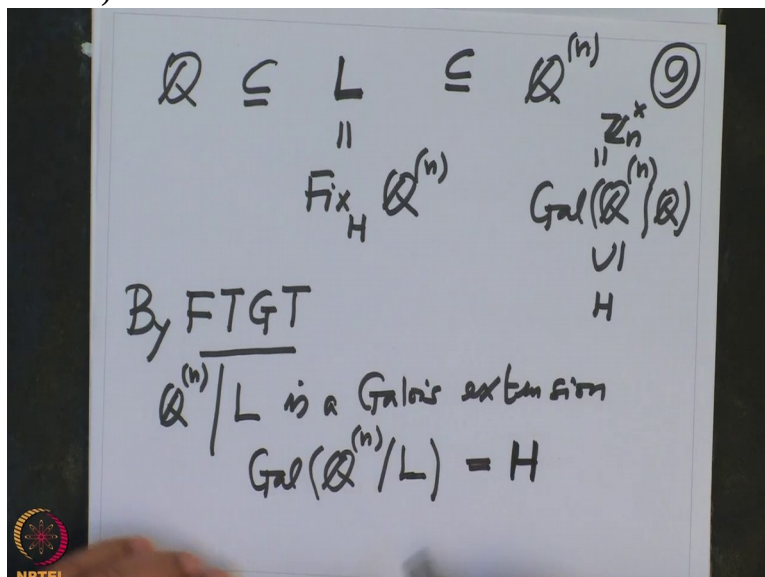 ℚ ⊆ L ⊆ ℚ⁽ⁿ⁾ ⑨
|| ℤₙˣ
Fix_H ℚ⁽ⁿ⁾ ||
Gal(ℚ⁽ⁿ⁾|ℚ)
∪|
H
By FTGT
ℚ⁽ⁿ⁾/L is a Galois extension
Gal(ℚ⁽ⁿ⁾/L) = H
NPTEL